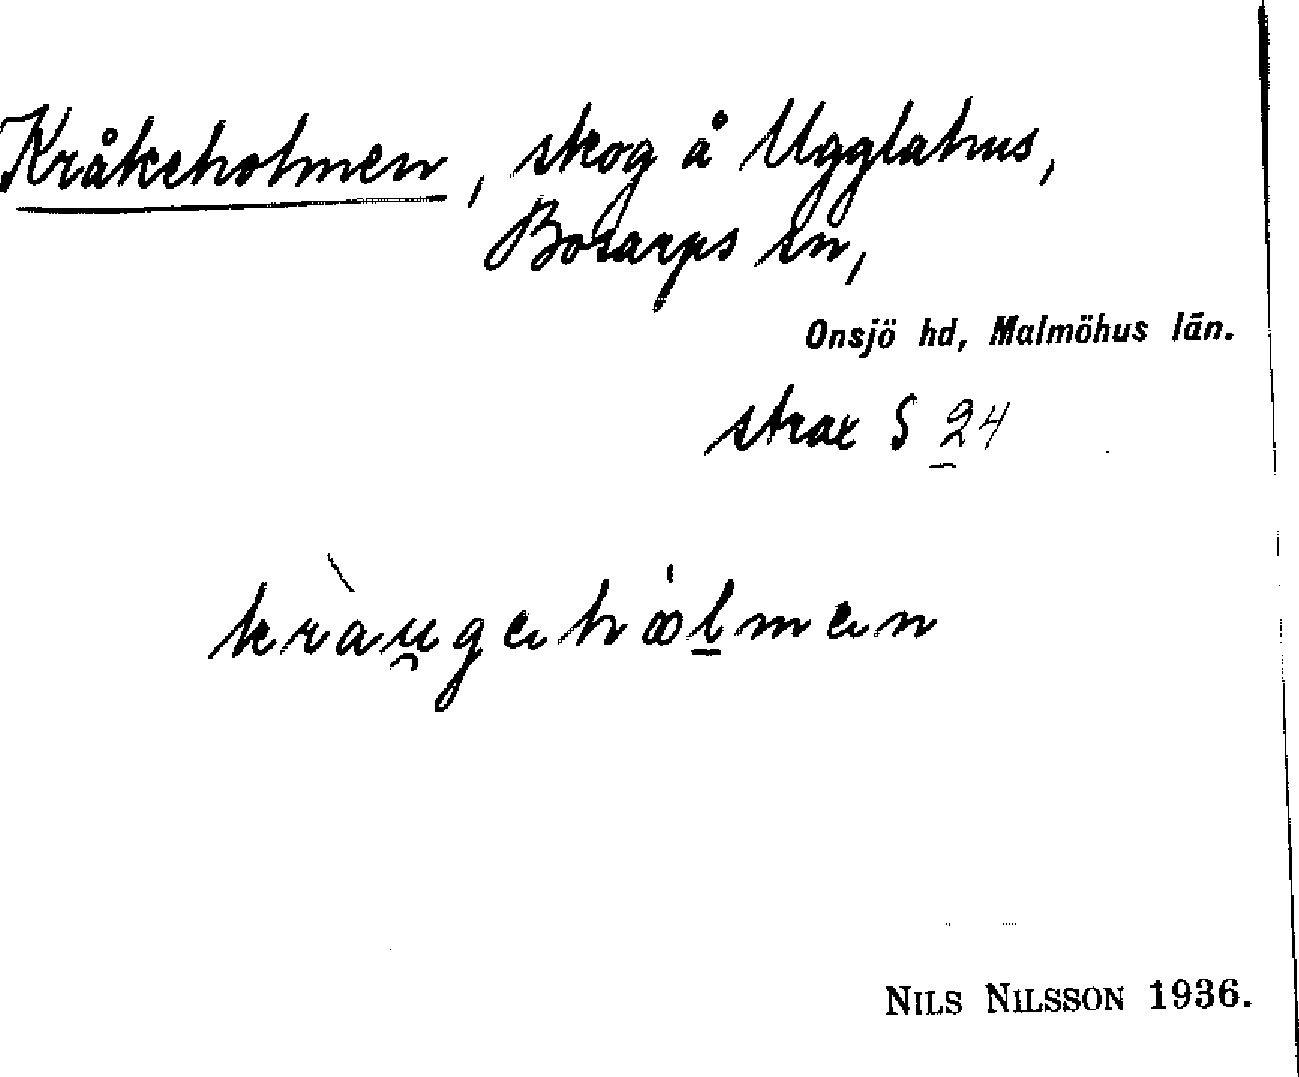 Kråkeholmen, skog å Ugglahus,
Bosarps sn,
Onsjö hd, Malmöhus län.
strax S 24
kràu̯gehꝏ́l̠men
NILS NILSSON 1936.